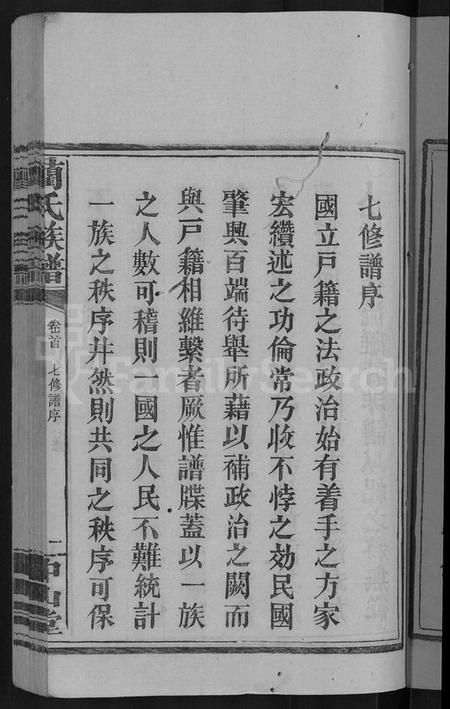 七修譜序
國立戸籍之法政治始有着手之方家
宏纘述之功倫常乃收不悖之効民國
肇興百端待舉所藉以補政治之闕而
與戸籍相維繫者厥惟譜牒蓋以一族
之人數可稽則 國之人民不難統計
一族之秩序井然則共同之秩序可保
氏族譜
卷首 七修譜序
FamilySearch